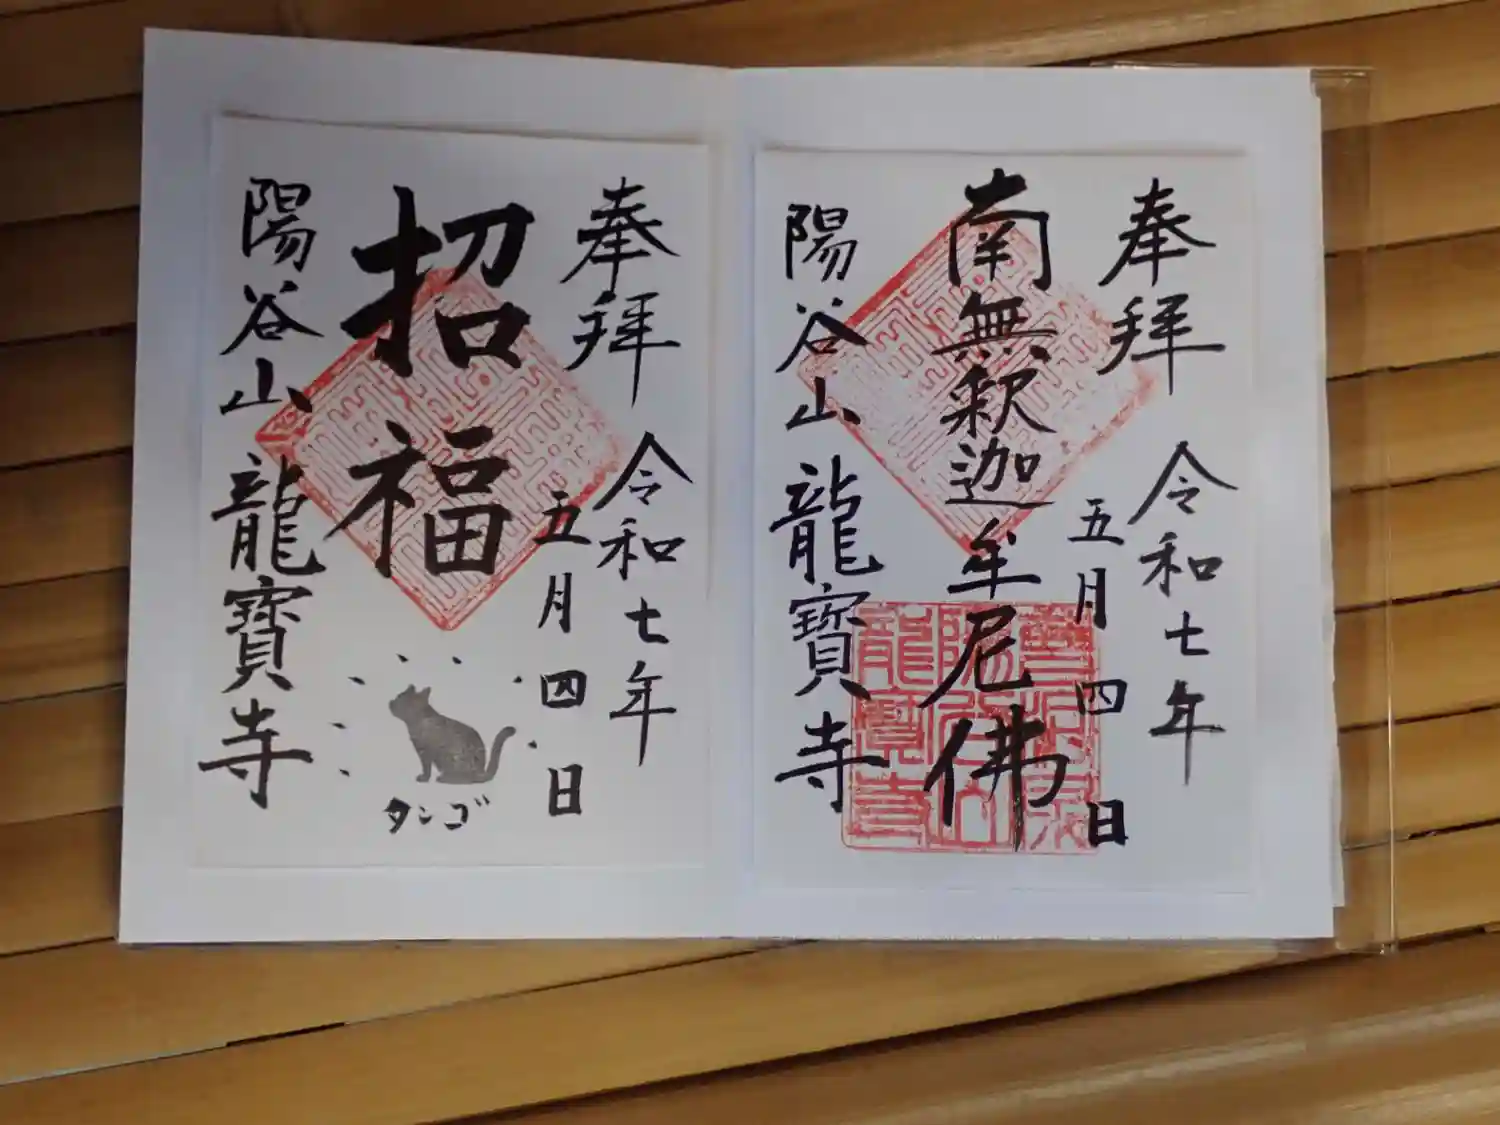 奉拝
令和七年
五月四日
南無釈迦牟尼佛
陽谷山 龍寶寺
奉拝
令和七年
五月四日
招福
タンゴ
陽谷山 龍寶寺